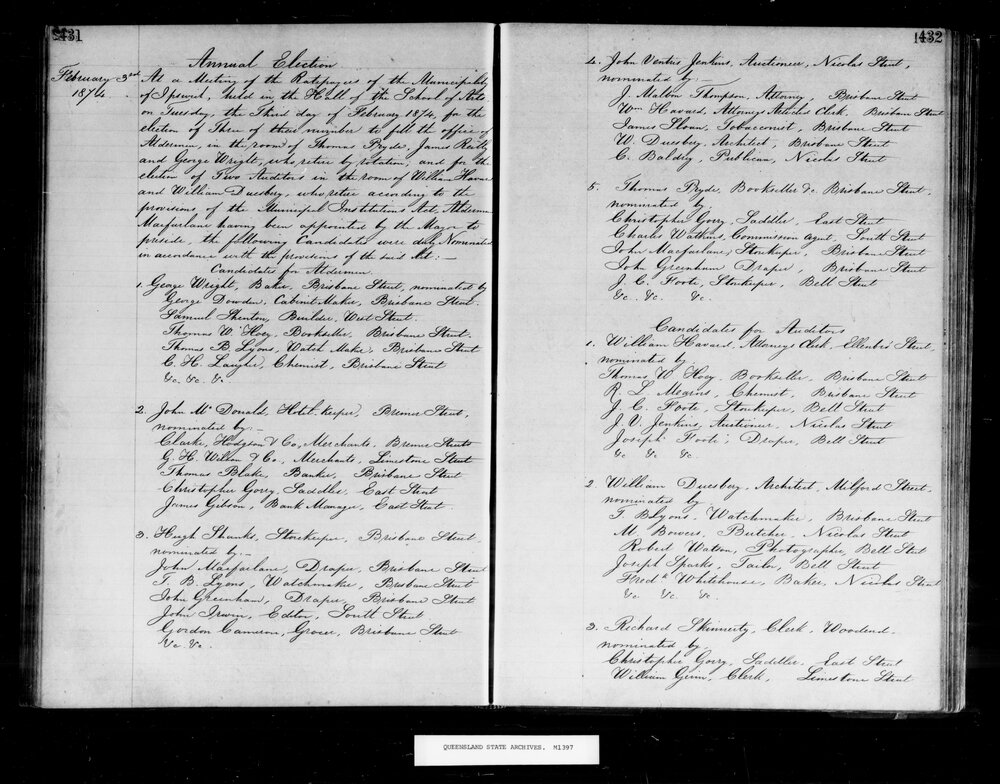 431
Annual Election
February 3rd
1874
At a Meeting of the Ratepayers of the Municipality
of Ipswich, held in the Hall of the School of Arts
on Tuesday, the Third day of February 1874, for the
election of Three of their number to fill the office of
Aldermen, in the room of Thomas Pryde, James Reith
and George Wright, who retire by rotation, and for the
election of Two Auditors in the room of William Havard
and William Duesbery, who retire according to the
provisions of the Municipal Institutions Act, Alderman
Macfarlane having been appointed by the Mayor to
preside, the following Candidates were duly Nominated
in accordance with the provisions of the said Act: —
Candidates for Aldermen.
1. George Wright, Baker, Brisbane Street, nominated by
George Dowden, Cabinet-Maker, Brisbane Street.
Samuel Shenton, Builder, West Street.
Thomas W. Hoey, Bookseller, Brisbane Street.
Thomas B. Lyons, Watch Maker, Brisbane Street
C. H. Laugher, Chemist, Brisbane Street
&c. &c. &c.
2. John Mc Donald, Hotel-keeper, Bremer Street,
nominated by —
Clarke, Hodgson & Co, Merchants, Bremer Street
G. H. Wilson & Co, Merchants, Limestone Street
Thomas Blake, Banker, Brisbane Street
Christopher Gorry, Saddler, East Street
James Gibson, Bank Manager, East Street.
3. Hugh Shanks, Storekeeper, Brisbane Street
nominated by: —
John Macfarlane, Draper, Brisbane Street
T. B. Lyons, Watchmaker, Brisbane Street
John Greenham, Draper, Brisbane Street
John Irwin, Editor, South Street
Gordon Cameron, Grocer, Brisbane Street
&c. &c.
432
4. John Ventris Jenkins, Auctioneer, Nicolas Street,
nominated by: —
J. Malbon Thompson, Attorney, Brisbane Street
Wm Havard, Attorneys Articled Clerk, Brisbane Street
James Sloan, Tobacconist, Brisbane Street
W. Duesbery, Architect, Brisbane Street
C. Baldry, Publican, Nicolas Street
5. Thomas Pryde, Bookseller &c Brisbane Street,
nominated by.
Christopher Gorry, Saddler, East Street
Charles Watkins, Commission Agent, South Street
John Macfarlane, Storekeeper, Brisbane Street
John Greenham Draper, Brisbane Street
J. C. Foote, Storekeeper, Bell Street
&c. &c. &c.
Candidates for Auditors
1. William Havard, Attorneys Clerk, Ellenboro Street,
nominated by
Thomas W Hoey. Bookseller, Brisbane Street
R. L. Megins, Chemist, Brisbane Street
J. C. Foote, Storekeeper, Bell Street
J. V. Jenkins, Auctioneer, Nicolas Street
Joseph Foote, Draper, Bell Street
&c &c &c.
2 William Duesbery, Architect, Milford Street.
nominated by
T. B Lyons, Watchmaker, Brisbane Street
M. Bowers, Butcher, Nicolas Street
Robert Watson, Photographer, Bell Street
Joseph Sparks, Tailor, Bell Street
Fredk Whitehouse, Baker, Nicolas Street
&c &c &c.
3. Richard Skinnerty, Clerk, Woodend.
nominated by
Christopher Gorry, Saddler. East Street
William Ginn, Clerk, Limestone Street
QUEENSLAND STATE ARCHIVES. M1397